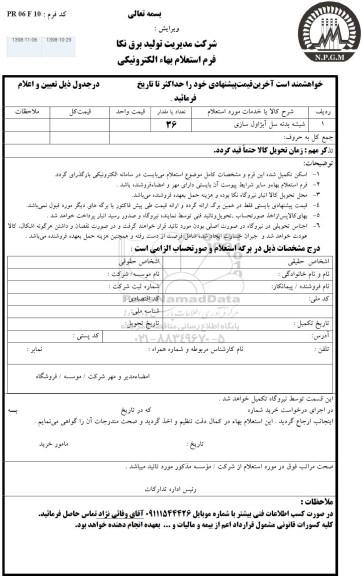 بسمه تعالی
کد فرم : PR 06 F 10
ویرایش :
1398-11-06
1398-10-29
شرکت مدیریت تولید برق نکا
فرم استعلام بهاء الکترونیکی
N.P.G.M
خواهشمند است آخرین‌قیمت‌پیشنهادی خود را حداکثر تا تاریخ درجدول ذیل تعیین و اعلام
فرمائید .
ردیف شرح کالا یا خدمات مورد استعلام تعداد یا مقدار قیمت واحد قیمت‌کل ملاحظات
۱ شیشه بدنه سل آبژاول سازی ۳۶
جمع کل به حروف:
تذکر مهم : زمان تحویل کالا حتماً قید گردد.
توضیحات:
۱- اسکن تکمیل شده این فرم و مشخصات کامل موضوع استعلام می‌بایست در سامانه الکترونیکی بارگذرای گردد.
۲- فرم استعلام بهاءو سایر شرایط پیوست آن بایستی دارای مهر و امضاءفروشنده باشد .
۳- محل تحویل کالا انبار نیروگاه نکا بوده و هزینه حمل بعهده فروشنده می‌باشد.
۴- قیمت پیشنهادی بایستی فقط در همین برگه ارائه گردد و ارائه قیمت طی پیش فاکتور یا برگه های دیگر مورد قبول نمی‌باشد.
۵- بهای‌کالاپس‌ازاخذ صورتحساب ،تحویل‌وتائید فنی توسط نماینده نیروگاه و صدور رسید انبار پرداخت خواهد شد .
۶- اجناس تحویلی در نیروگاه در صورت اصلی بودن مورد تائید قرار خواهند گرفت و در صورت نقصان و داشتن هرگونه اشکال، کالا
عودت خواهد شد و جبران خسارت ایجاد شده شامل فرصت از دست رفته و همچنین هزینه حمل بعهده فروشنده می‌باشد.
درج مشخصات ذیل در برگه استعلام و صورتحساب الزامی است :
اشخاص حقیقی اشخاص حقوقی
نام و نام خانوادگی : نام موسسه/ شرکت :
نام فروشنده / پیمانکار: شماره ثبت شرکت :
کد ملی: کد اقتصادی :
شناسه ملی:
تاریخ تکمیل : تاریخ تحویل:
آدرس: کد پستی :
تلفن : نام کارشناس مربوطه و شماره همراه : نمابر :
امضاءمدیر و مهر شرکت / موسسه / فروشگاه
ParsNamadData
۰۲۱-۸۸۳۴۹۶۷۰-۵
این قسمت توسط نیروگاه تکمیل خواهد شد .
در اجرای درخواست خرید شماره که در تاریخ بسه
اینجانب ارجاع گردید . این استعلام بهاء در کمال دقت تنظیم و اخذ گردید و صحت مندرجات آن را گواهی می‌نمایم .
تاریخ : مامور خرید
صحت مراتب فوق در مورد استعلام از شرکت / مؤسسه مذکور مورد تائید میباشد .
رئیس اداره تدارکات
ملاحظات :
در صورت کسب اطلاعات فنی بیشتر با شماره موبایل ۰۹۱۱۱۵۴۴۴۲۶ آقای وفائی نژاد تماس حاصل فرمائید.
کلیه کسورات قانونی مشمول قرارداد اعم از بیمه و مالیات و ... بعهده انجام دهنده خواهد بود.